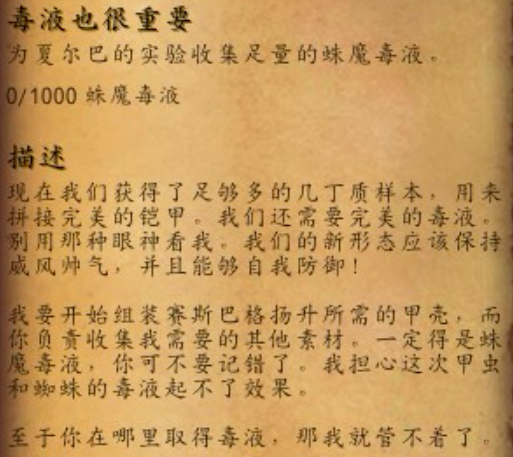 毒液也很重要
为夏尔巴的实验收集足量的蛛魔毒液。
0/1000 蛛魔毒液
描述
现在我们获得了足够多的几丁质样本，用来
拼接完美的铠甲。我们还需要完美的毒液。
别用那种眼神看我。我们的新形态应该保持
威风帅气，并且能够自我防御！
我要开始组装赛斯巴格扬升所需的甲壳，而
你负责收集我需要的其他素材。一定得是蛛
魔毒液，你可不要记错了。我担心这次甲虫
和蜘蛛的毒液起不了效果。
至于你在哪里取得毒液，那我就管不着了。